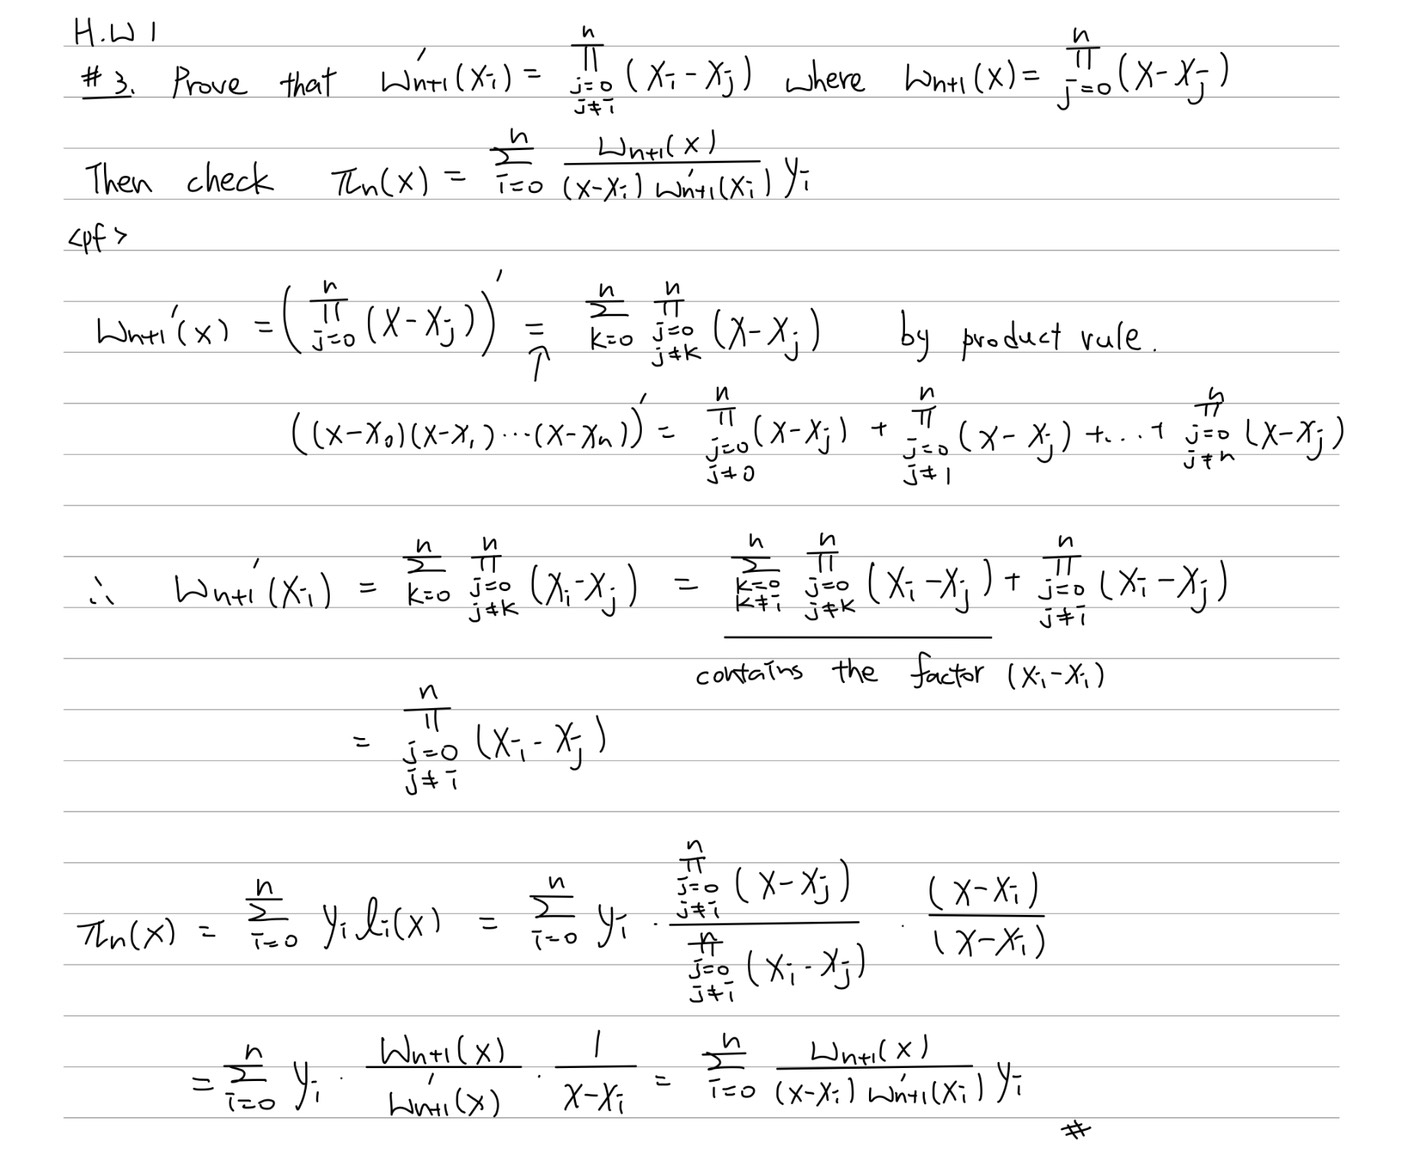 H.W 1
#3. Prove that ω'ₙ₊₁(xᵢ) = ∏_{j=0, j≠i}^{n} (xᵢ - xⱼ) where ωₙ₊₁(x) = ∏_{j=0}^{n} (x - xⱼ)
Then check πₙ(x) = ∑_{i=0}^{n} ωₙ₊₁(x) / ((x-xᵢ) ω'ₙ₊₁(xᵢ)) yᵢ
<pf>
ωₙ₊₁'(x) = (∏_{j=0}^{n} (x-xⱼ))' = ∑_{k=0}^{n} ∏_{j=0, j≠k}^{n} (x-xⱼ) by product rule.
↑
((x-x₀)(x-x₁)⋯(x-xₙ))' = ∏_{j=0, j≠0}^{n} (x-xⱼ) + ∏_{j=0, j≠1}^{n} (x-xⱼ) + ... + ∏_{j=0, j≠n}^{n} (x-xⱼ)
∴ ωₙ₊₁'(xᵢ) = ∑_{k=0}^{n} ∏_{j=0, j≠k}^{n} (xᵢ-xⱼ) = ∑_{k=0, k≠i}^{n} ∏_{j=0, j≠k}^{n} (xᵢ-xⱼ) + ∏_{j=0, j≠i}^{n} (xᵢ-xⱼ)
contains the factor (xᵢ-xᵢ)
= ∏_{j=0, j≠i}^{n} (xᵢ-xⱼ)
πₙ(x) = ∑_{i=0}^{n} yᵢ lᵢ(x) = ∑_{i=0}^{n} yᵢ · ∏_{j=0, j≠i}^{n} (x-xⱼ) / ∏_{j=0, j≠i}^{n} (xᵢ-xⱼ) · (x-xᵢ) / (x-xᵢ)
= ∑_{i=0}^{n} yᵢ · ωₙ₊₁(x) / ω'ₙ₊₁(x) · 1 / (x-xᵢ) = ∑_{i=0}^{n} ωₙ₊₁(x) / ((x-xᵢ) ω'ₙ₊₁(xᵢ)) yᵢ
#